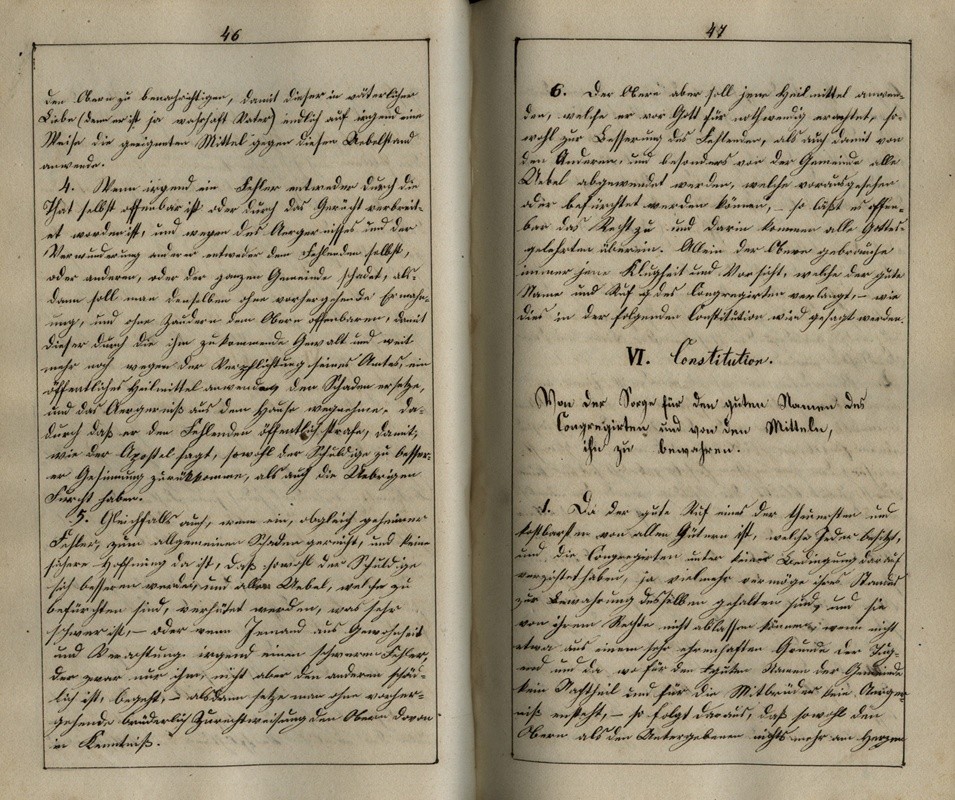 46
den Obern zu benachrichtigen, damit dieser in väterlicher
Liebe (denn er ist ja wahrhaft Vater) endlich auf irgend eine
Weise die geeigneten Mittel gegen diesen Uebelstand
anwende.
4. Wenn irgend ein Fehler entweder durch die
That selbst offenbar ist oder durch das Gerücht verbreit-
et worden ist, und wegen des Aergernisses und der
Verwunderung anderer entweder dem Fehlenden selbst,
oder anderen, oder der ganzen Gemeinde schadet, als-
dann soll man denselben ohne vorhergehende Ermahn-
ung, und ohne Zaudern dem Obern offenbaren, damit
dieser durch die ihm zukommende Gewalt und weit
mehr noch wegen der Verpflichtung seines Amtes, ein
öffentliches Heilmittel anwendend den Schaden ersetze,
und das Aergerniß aus dem Hause wegnehme, da-
durch daß er den Fehlenden öffentlich strafe, damit,
wie der Apostel sagt, sowohl der Schuldige zu besser-
er Gesinnung zurükkomme, als auch die Uebrigen
Furcht haben.
5. Gleichfalls auch, wenn ein, obgleich geheimer
Fehler, zum allgemeinen Schaden gereicht, und keine
sichere Hoffnung da ist, daß sowohl der Schuldige
sich bessern werde, und allen Uebel, welche zu
befürchten sind, verhütet werden, was sehr
schwer ist, – oder wenn Jemand aus Gewohnheit
und Verachtung irgend einen schweren Fehler,
der zwar nur ihm, nicht aber den anderen schäd-
lich ist, begeht, – alsdann setze man ohne vorher-
gehende brüderlich Zurechtweisung den Obern davon
in Kenntniß.
47
6. Der Obere aber soll jene Heilmittel anwen-
den, welche er vor Gott für nothwendig erachtet, so-
wohl zur Besserung des Fehlenden, als auch damit von
den Anderen, und besonders von der Gemeinde alle
Uebel abgewendet werden, welche vorausgesehen
oder befürchtet werden können, – so läßt es offen-
bar das Recht zu und darin kommen alle Gottes-
gelehrten überein. Allein der Obere gebrauche
immer jene Klugheit und Vorsicht, welche der gute
Name und Ruf des Congregirten verlangt, – wie
dies in der folgenden Constitution wird gesagt werden.
VI. Constitution.
Von der Sorge für den guten Namen des
Congregirten und von den Mitteln,
ihn zu bewahren.
1. Da der gute Ruf eines der theuersten und
kostbarsten von allen Gütern ist, welche Jeder besitzt,
und die Congregirten unter keiner Bedingung darauf
verzichtet haben, ja vielmehr vermöge ihres Standes
zur Bewahrung desselben gehalten sind, und sie
von ihrem Rechte nicht ablassen können, wenn nicht
etwa aus einem sehr ehrenhaften Grunde der Tug-
end und da, wo für den guten Namen der Gemeinde
kein Nachtheil und für die Mitbrüder kein Aerger-
niß entsteht, – so folgt daraus, daß sowohl den
Obern als den Untergebenen nichts mehr am Herzen